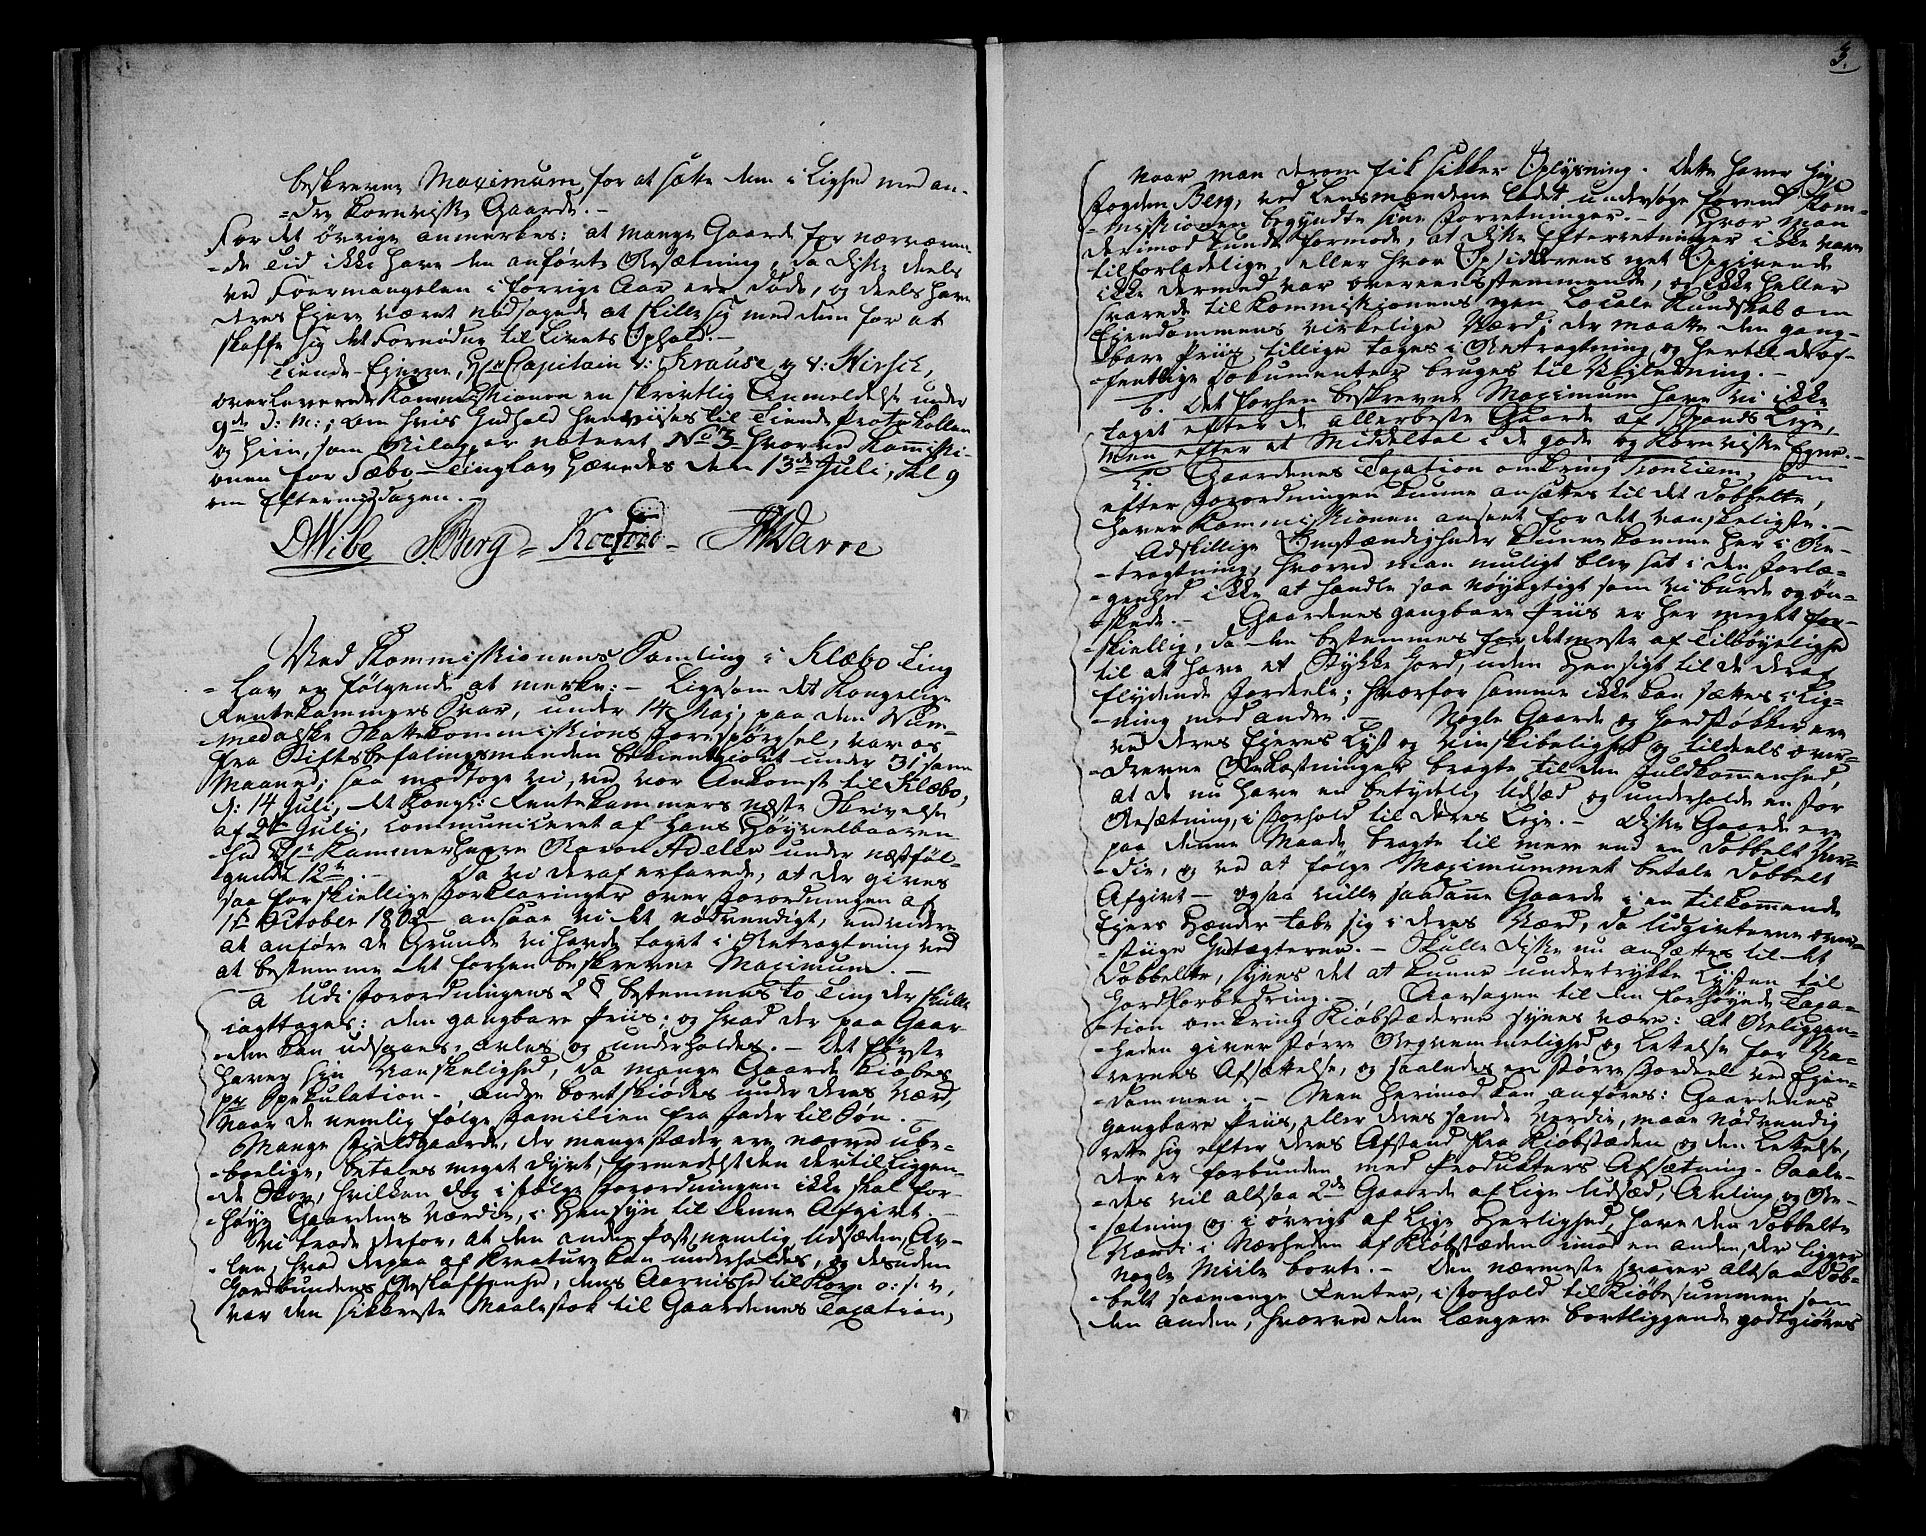 beskrevne Maximum, for at sætte dem i Lighed med an-
=dre kornviisse Gaarde. -
For det øvrige anmerkes: at mange Gaarde for nærværen-
=de Tid ikke have den anførte Besætning, da diske deels
ved Foermangelen i forrige Aar ere døde, og deels have
deres Ejere været nødsagede at skille sig med dem for at
skaffe sig det Fornødne til Livets Ophold. -
Tiende-Ejerne, Hr Capitain v: Krause og v: Hirsch,
overleverede Kommissionen en skrivtlig Anmeldelse under
9de d: M:, om hvis Indhold henviises til Tiende Protokollen
og hiin, som Bilag er noteret No 3 hvorved Kommissi-
onen for Sæbo-Tinglav hævedes den 13de Juli, Kl 9
om Eftermidagen. -
DWibe JBerg = Koefoed - Darre
Ved Kommissionens Samling i Klæbo Ting
=lav er følgende at merke: - Ligesom det Kongelige
Rentekammers Svar, under 14 Maj, paa den Num-
=medalske Skattekommissions Forespørgsel, var os
fra Stiftsbefalingsmanden bekiendtgiort under 31 samme
Maaned; saa modtoge vi, ved vor Ankomst til Klæbo,
d: 14 Juli, det Kongl: Rentekammers næste Skrivelse
af 2den Juli, communiceret af Hans Høyvelbaaren-
=hed Hr Kammerherre Baron Adeler under næstføl-
gende 12te. - Da vi deraf erfarede, at der gives
saa forskiellige Forklaringer over Forordningen af
1te October 1802 - ansaae vi det nødvendigt, endvidere
at anføre de Grunde vi havde taget i Betragtning ved
at bestemme det forhen beskrevne Maximum. -
a Udi Forordningens 2 § bestemmes to Ting der skulle
iagttages: den gangbare Priis; og hvad der paa Gaar-
=den kan udsaaes, avles og underholdes. - Det første
haver sin Vanskelighed, da mange Gaarde kiøbes
pr Spekulation -, andre bortskiødes under deres Værd,
naar de nemlig følge Familien fra Fader til Søn.
Mange Fieldgaarde, der mange stæder ere næsten ube-
=boelige, betales meget dyrt, formedelst den dertil liggen-
=de Skov, hvilken dog i følge Forordningen ikke skal for-
=høye Gaardens Værdie, i Hensyn til denne Afgivt. -
Vi troede derfor, at den anden Post, nemlig Udsæden, Av-
=len, hvad derpaa af Kreature kan underholdes, og desuden
Jordbundens Beskaffenhed, dens Aarvished til Korn o: s: v,
var den sikkreste Maalestok til Gaardenes Taxation,
3.
naar man derom fik sikker Oplysning. Dette haver Hr
Fogden Berg, ved Lensmændene ladet undersøge førend Kom-
=missionen begyndte sine Forretninger. - Hvor man
derimod kunde formode, at diske Efterretninger ikke vare
tilforladelige, eller hvor Opsidderens eget Opgivende
ikke dermed var overeensstemmende, og ikke heller
svarede til Kommissionens egen Locale Kundskab om
Ejendommens virkelige Værd; der maatte den gang-
=bare Priis tillige tages i Betragtning og hertil de of-
=fentlige Dokumenter bruges til Vejledning. -
b. Det forhen beskrevne Maximum have vi ikke
taget efter de allerbeste Gaarde af Spands Leje,
men efter et Middeltal i de gode og Kornviske Egne. -
c. Gaardenes Taxation omkring Tronhiem, som
efter Forordningen kunne ansættes til det dobbelte,
haver Kommissionen anseet for det vanskeligste. -
Adskillige Omstændigheder kunne komme her i Be-
=tragtning, hvorved man muligt blev sat i den Forlæ-
=genhed ikke at handle saa nøyagtigt som vi burde og øn-
=skede. - Gaardenes gangbare Priis er her meget for-
=skiellig, da den bestemmes for det meste af Tilbøyelighed
til at have et Stykke Jord, uden Hensigt til de deraf
flydende Fordeele; hvorfor samme ikke kan sættes i Lig-
=ning med andre. - Nogle Gaarde og Jordstykker ere
ved deres Ejeres Lyst og Vinskibelighed og tildeels over-
=drevne Bekostninger bragte til den Fuldkommenhed,
at de nu have en betydelig Udsæd og underholde en stor
Besætning, i Forhold til deres Leje. - Diske Gaarde ere
paa denne Maade bragte til mere end en dobbelt Vær-
die, og ved at følge Maximummet betale dobbelt
Afgivt - ogsaa ville saadanne Gaarde i en tilkommende
Ejers Hænder tabe sig i deres Værd, da Udgivterne over-
=stiige Indtægterne. - Skulle diske nu ansættes til det
dobbelte, synes det at kunne undertrykke Lysten til
Jordforbedring. - Aarsagen til den forhøyede Taxa-
=tion omkring Kiøbstæderne synes være: at Beliggen-
=heden giver større Beqvemmelighed og Lettelse for Va-
=rernes Afsættelse, og saaledes en større Fordeel ved Ejen-
=dommen. - Men herimod kan anføres: Gaardenes
gangbare Priis, eller deres sande Værdie, maae nødvendig
rette sig efter deres Afstand fra Kiøbstæden og den Lettelse,
der er forbunden med Produkters Afsætning. Saale-
=des vil altsaa 2de Gaarde af lige Udsæd, Avling og Be-
=sætning og i øvrigt af lige Herlighed, have den dobbelte
Værdi i Nærheden af Kiøbstæden imod en anden, der ligger
nogle Miile borte. - Den nærmeste svarer altsaa dob-
=belt saamange Renter, i Forhold til Kiøbesummen som
den anden, hvorved den længere bortliggende godtgiøres